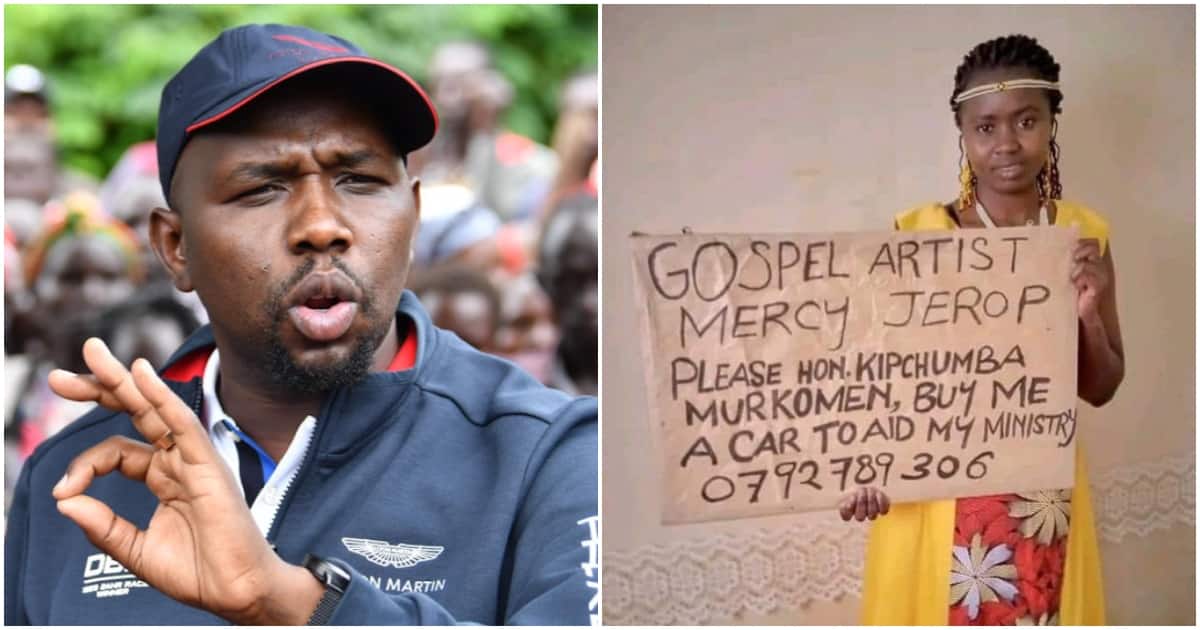 DB
WINNER
ON MARTIN
GOSPEL ARTIST
MERCY JEROP
PLEASE HON. KIPCHUMBA
MURKOMEN, BUY ME
A CAR TO AID MY MINISTRY
0792789306